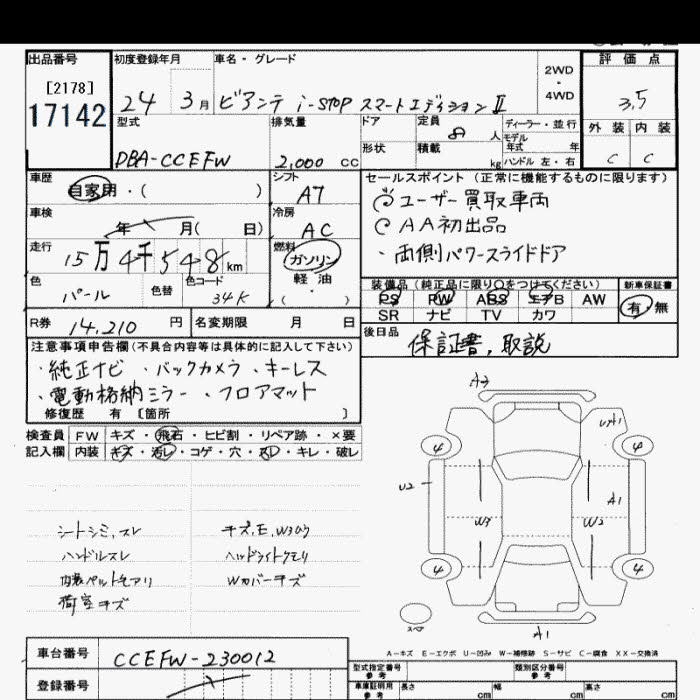 出品番号 初度登録年月 車名・グレード 2WD・4WD 評価点
[2178]
17142
24 3月 ビアンテ i-STOP スマートエディションⅡ 3.5
型式 排気量 ドア 定員 8人 ディーラー・並行 外装 内装
モデル年式 年
DBA-CCEFW 2,000 cc 形状 積載 kg ハンドル 左・右 C C
車歴 自家用・( ) シフト AT セールスポイント(正常に機能するものに限ります)
ユーザー買取車両
車検 年 月( 日) 冷房 AC AA初出品
走行 15万4千548km 燃料 ガソリン ・両側パワースライドドア
軽油
( )
色 パール 色替 色コード 34K 装備品(純正品に限り○をつけてください) 新車保証書
PS PW ABS エアB AW 有・無
SR ナビ TV カワ
R券 14,210円 名変期限 月 日 後日品 保証書,取説
注意事項申告欄(不具合内容等は具体的に記入して下さい)
・純正ナビ ・バックカメラ ・キーレス
・電動格納ミラー ・フロアマット
修復歴 有 〔箇所 〕
検査員 FW キズ・飛石・ヒビ割・リペア跡・×要
記入欄 内装 キズ・汚レ・コゲ・穴・スレ・キレ・破レ
シートシミ,スレ
ハンドルスレ
内装ペットモアリ
荷室キズ
ヘッドライトクモリ
Wカバーキズ
A3
UA1
4 4
U2
A1
W3 W2
4 4
スペア
A1
A-キズ E-エクボ U-凹み W-補修跡 S-サビ C-腐食 XX-交換済
車台番号 CCEFW-230012 型式指定番号 参考 類別区分番号 参考
登録番号 車庫証明用 参考 長さ cm 幅 cm 高さ cm